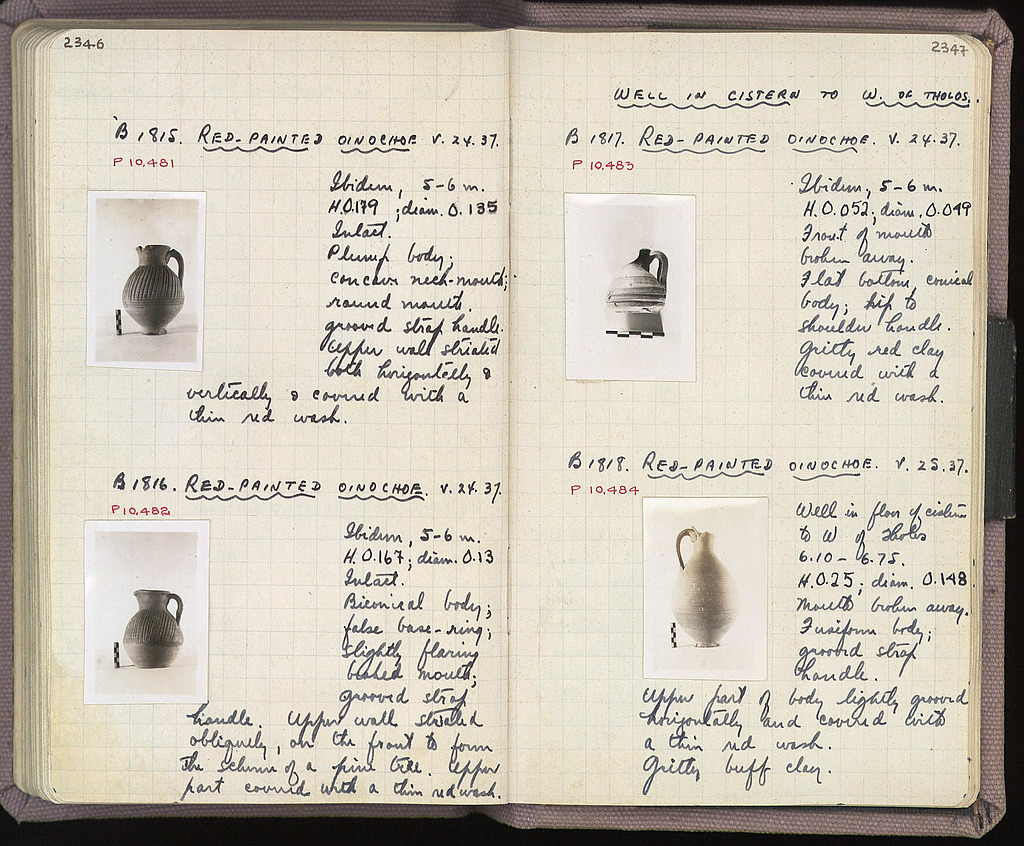 2346
B 1815. RED-PAINTED OINOCHOE. V. 24.37.
P 10,481
Ibidem, 5-6 m.
H. 0.179 ; diam. 0.135
Intact.
Plump body;
concave neck-mouth;
round mouth,
grooved strap handle.
Upper wall striated
both horizontally &
vertically & covered with a
thin red wash.
B 1816. RED-PAINTED OINOCHOE. V. 24.37.
P 10,482
Ibidem, 5-6 m.
H. 0.167; diam. 0.13
Intact.
Biconical body;
false base-ring;
slightly flaring
beaked mouth;
grooved strap
handle. Upper wall striated
obliquely, on the front to form
the scheme of a pine tree. Upper
part covered with a thin red wash.
2347
WELL IN CISTERN TO W. OF THOLOS.
B 1817. RED-PAINTED OINOCHOE. V. 24.37.
P 10,483
Ibidem, 5-6 m.
H. 0.052; diam. 0.049
Front of mouth
broken away.
Flat bottom, conical
body; hip to
shoulder handle.
Gritty red clay
covered with a
thin red wash.
B 1818. RED-PAINTED OINOCHOE. V. 25.37.
P 10,484
Well in floor of cistern
to W of Tholos
6.10 - 6.75.
H. 0.25; diam. 0.148
Mouth broken away.
Fusiform body;
grooved strap
handle.
Upper part of body lightly grooved
horizontally and covered with
a thin red wash.
Gritty buff clay.